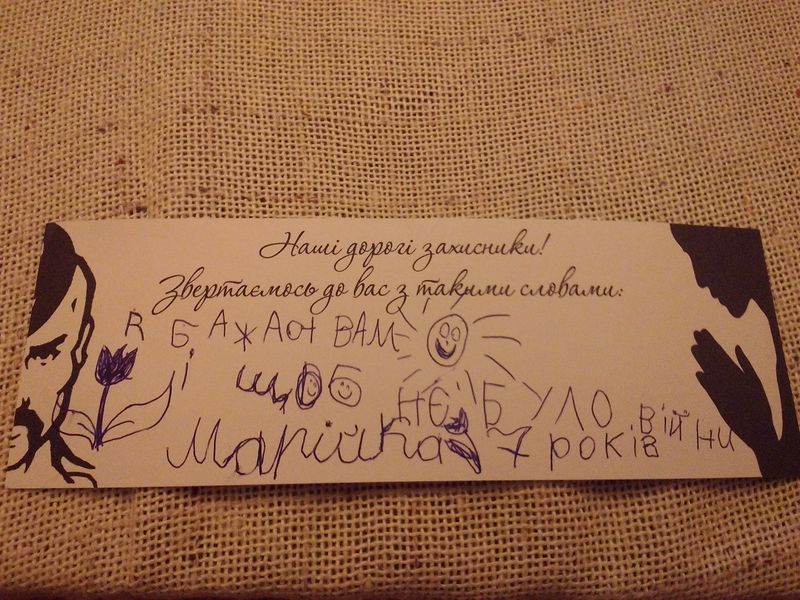 Наші дорогі захисники!
Звертаємось до вас з такими словами:
Я БАЖАЮ ВАМ
І ЩОБ НЄ БУЛО ВІЙНИ
Марійка 7 років